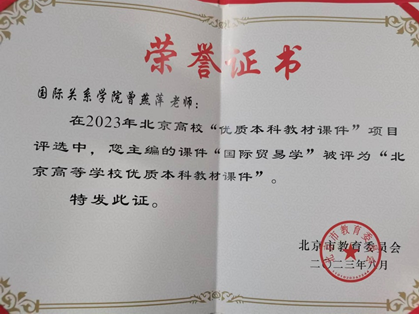 荣誉证书
国际关系学院曾燕萍老师：
在2023年北京高校“优质本科教材课件”项目
评选中，您主编的课件“国际贸易学”被评为“北
京高等学校优质本科教材课件”。
特发此证。
北京市教育委员会
二〇二三年八月